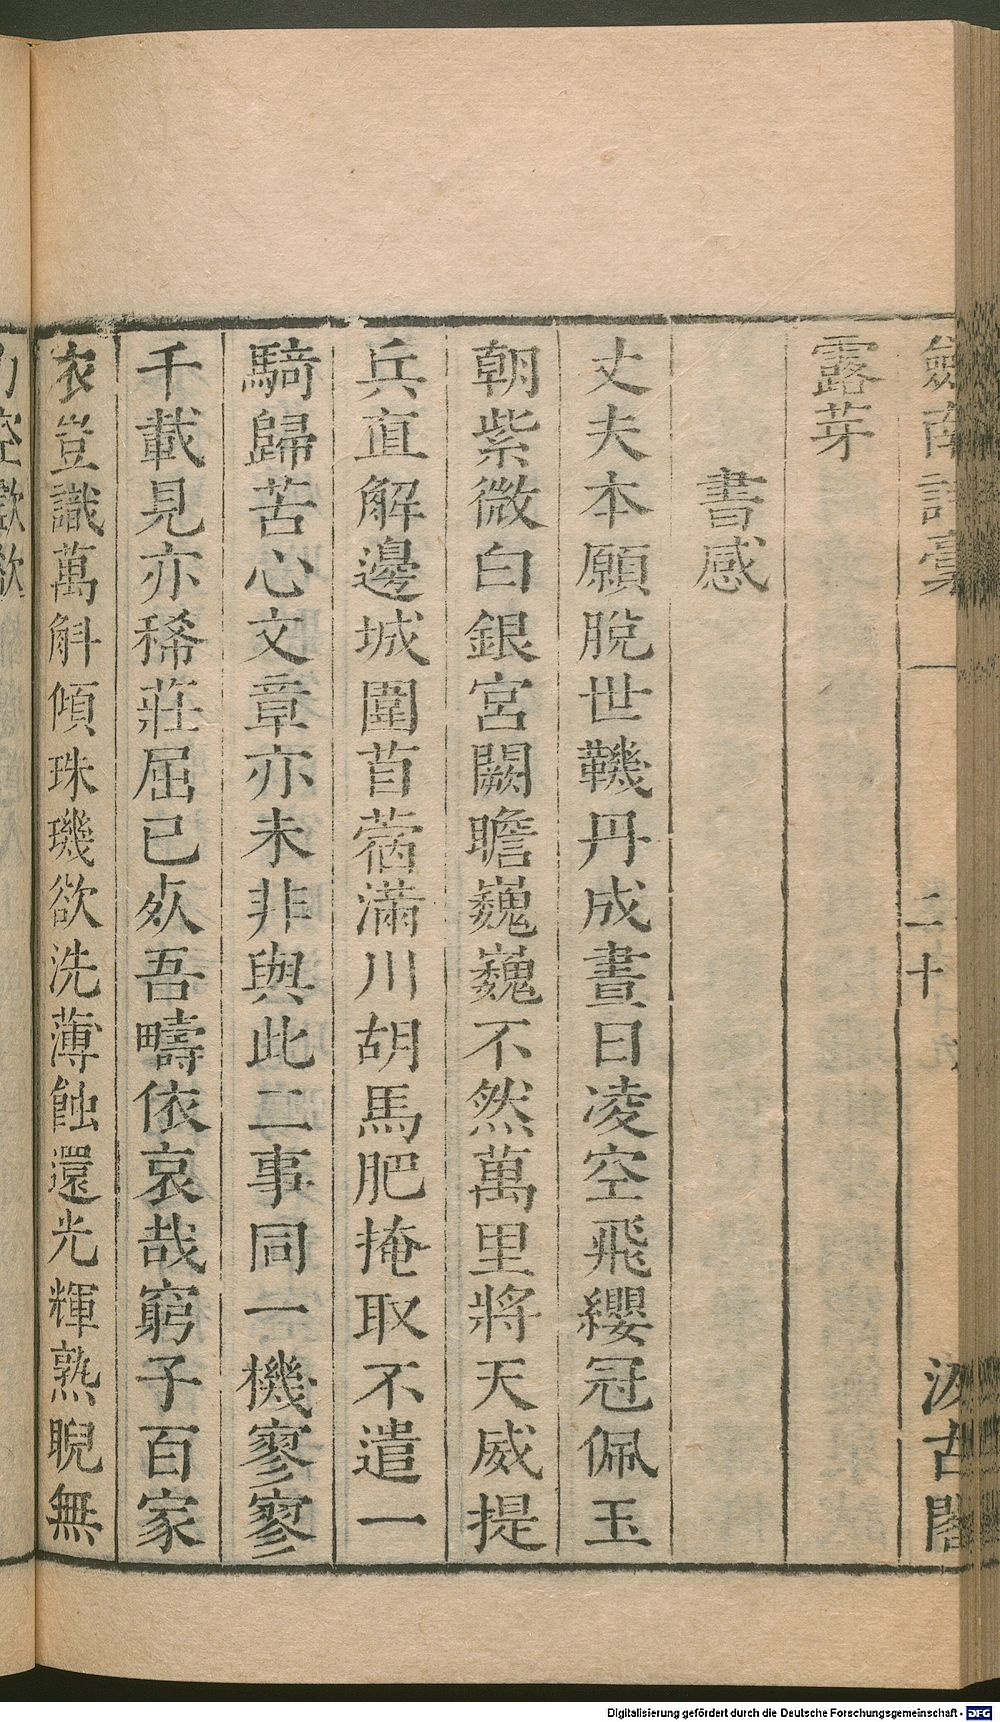 劍南詩稾 一 二十 汲古閣
露芽
書感
丈夫本願脫世鞿丹成晝日凌空飛纓冠佩玉
朝紫微白銀宮闕瞻巍巍不然萬里將天威提
兵直解邊城圍苜蓿滿川胡馬肥掩取不遣一
騎歸苦心文章亦未非與此二事同一機寥寥
千載見亦稀莊屈已死吾疇依哀哉窮子百家
衣豈識萬斛傾珠璣欲洗薄蝕還光輝熟睨無
Digitalisierung gefördert durch die Deutsche Forschungsgemeinschaft - DFG